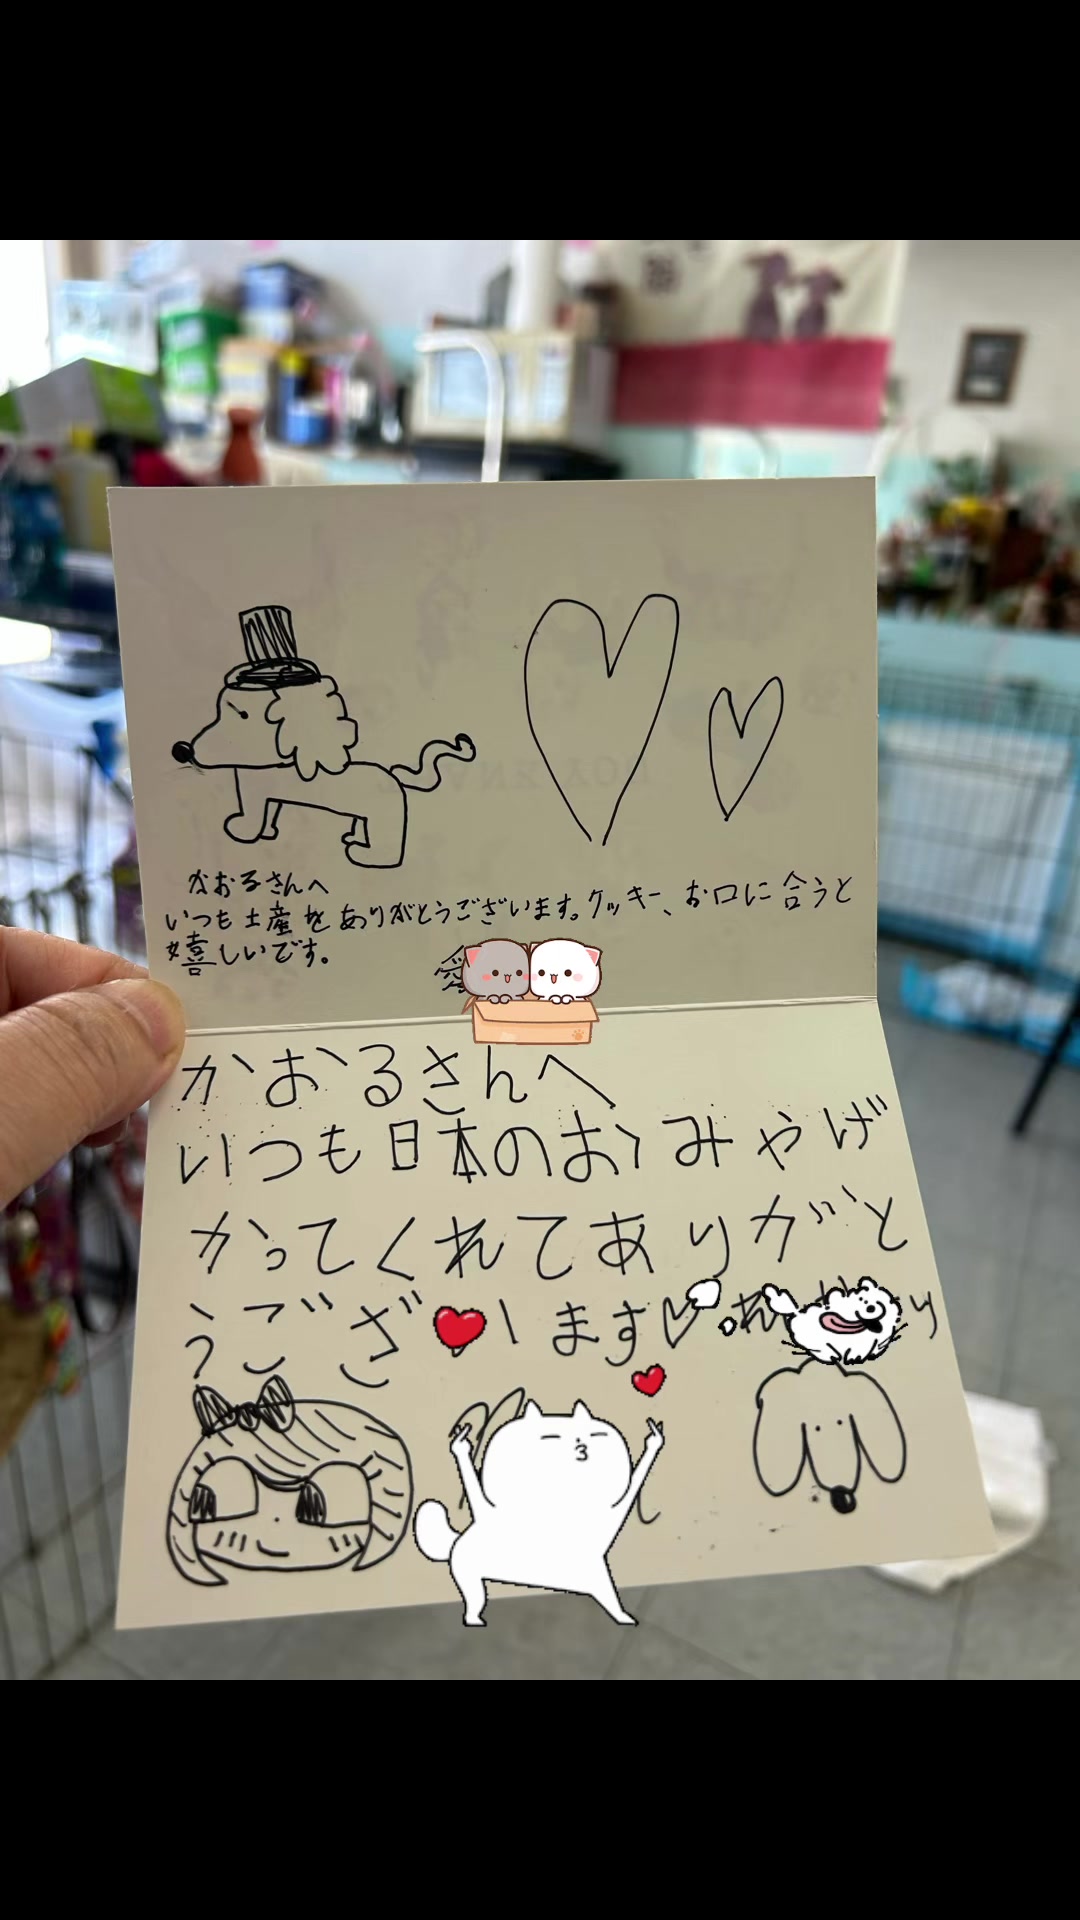 かおるさんへ
いつも土産をありがとうございます。クッキー、お口に合うと
嬉しいです。
愛
かおるさんへ
いつも日本のおみやげ
かってくれてありがと
うござします♡